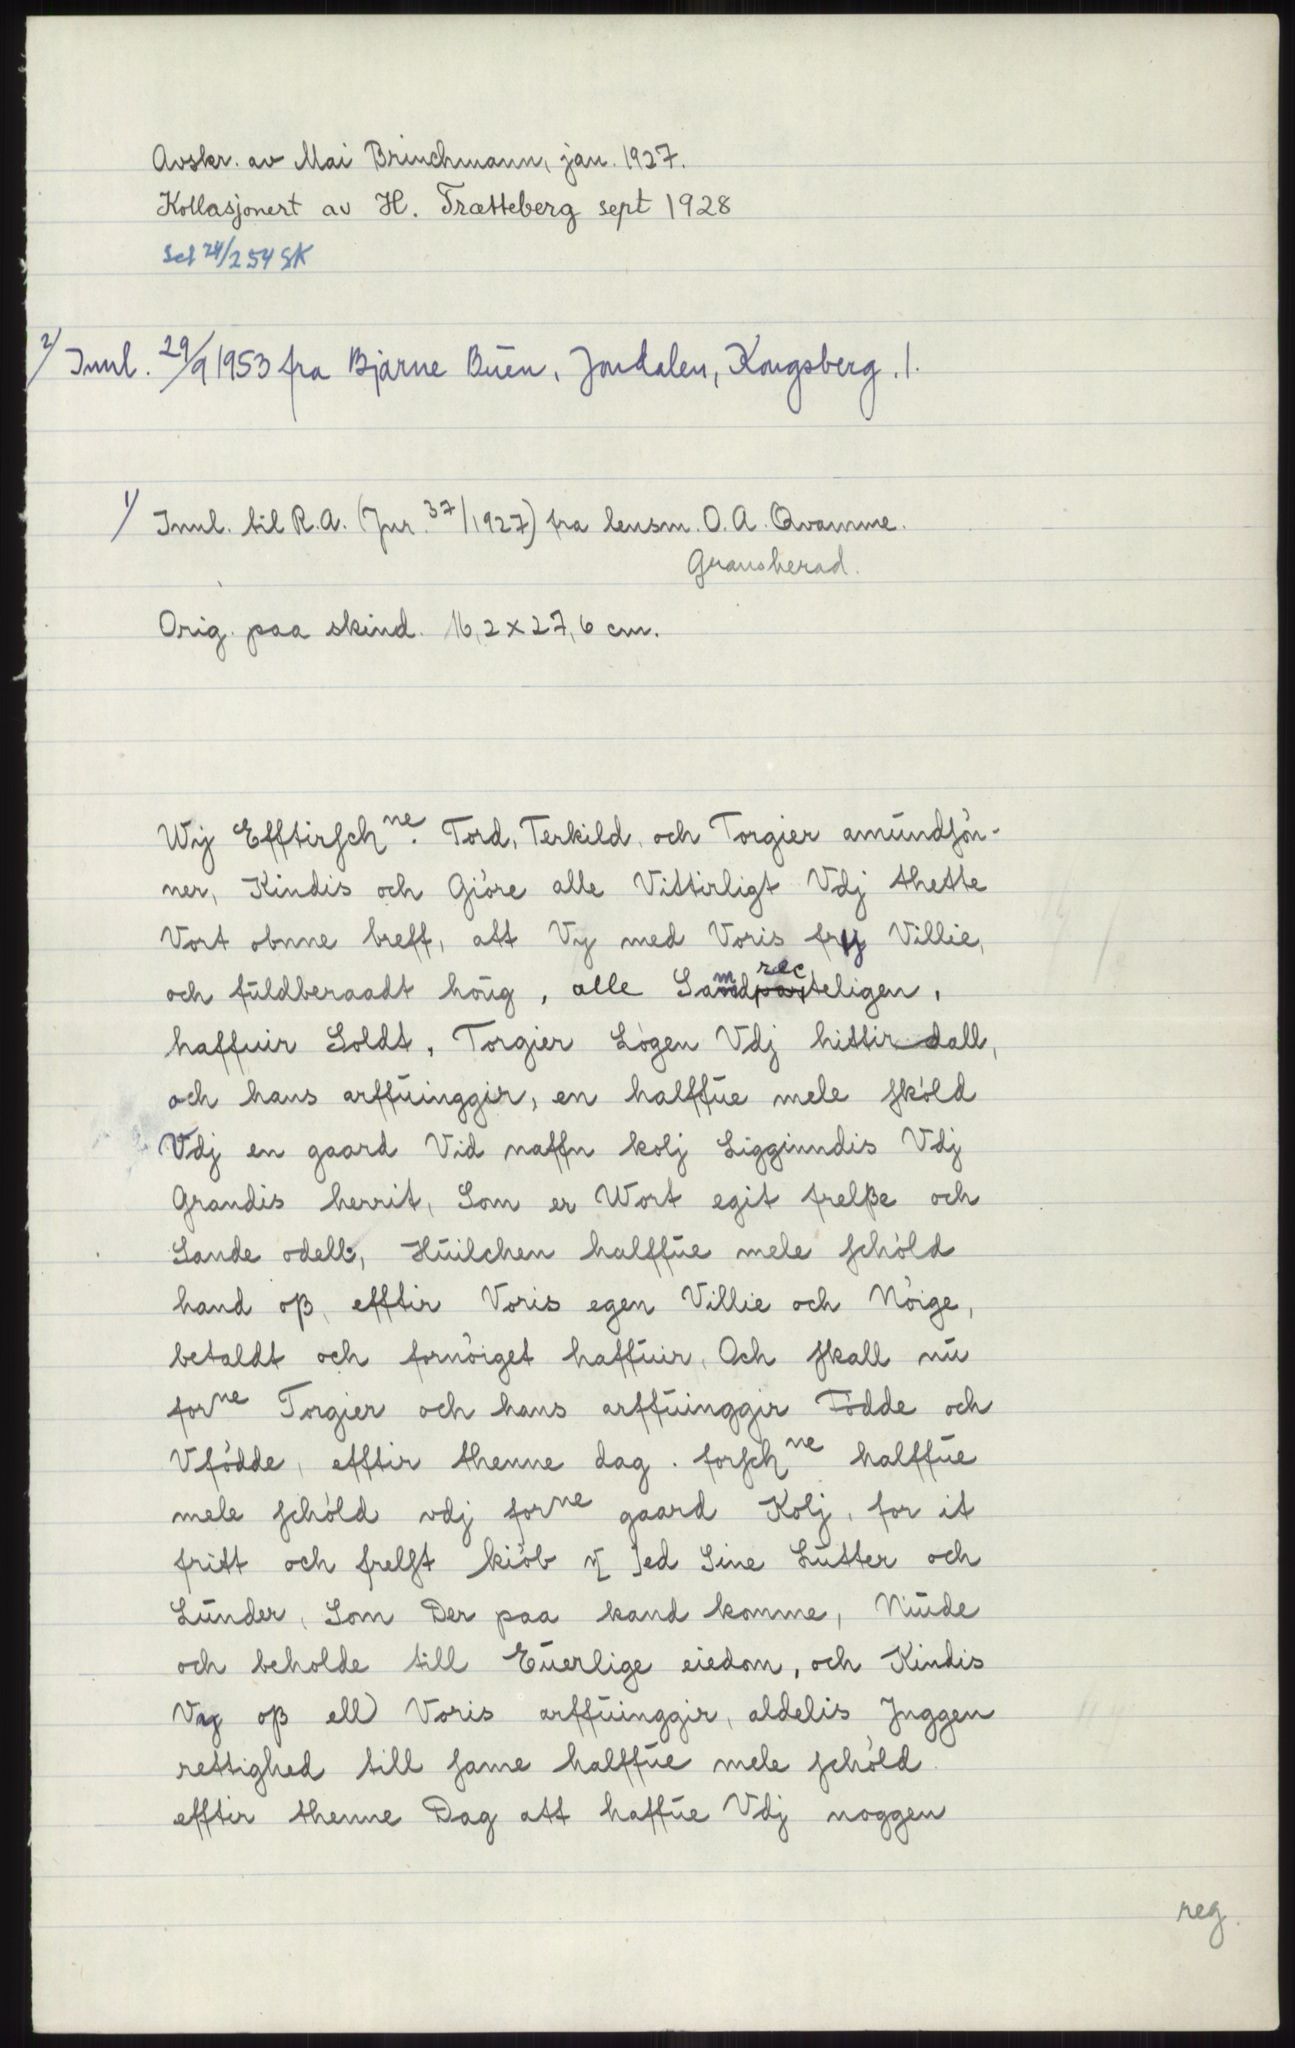 Avskr. av Mai Brinchmann, jan. 1927.
Kollasjonert av H. Trætteberg sept 1928
Set 24/254 SK
2/ Innl. 29/9 1953 fra Bjarne Buen, Jondalen, Kongsberg. /.
1/ Innl. til R.A. (Jnr. 37/1927) fra lensm. O. A. Qvamme.
Gransherad.
Orig. paa skind. 16,2 x 27,6 cm.
Wij Efftirschne. Tord, Terkild, och Torgier amŭndsön-
ner, Kindis och Giöre alle Vittirligt Vdj thette
Vort obnne breff, att Vy med Voris frij Villie,
och fŭldberaadt hŏŭg, alle Samdrecteligen,
haffuir Soldt, Torgier Lögen Vdj hittirdall,
och hans arffŭinggir, en halffŭe mele sköld
Vdj en gaard Vid naffn kolj Ligginndis Vdj
Grandis herrit, Som er Wort egit frelße och
Sande odell, Hŭilchen halffŭe mele schöld
hand oß, efftir Voris egen Villie och Nöige,
betaldt och fornöiget haffuir, Och skall nŭ
forne Torgier och hans arffŭinggir Födde och
Vfödde, efftir thenne dag. forschne halffŭe
mele schöld vdj forne gaard Kolj, for it
fritt och frelst kiöb v[ ]ed Sine Lŭtter och
Lŭnder, Som Der paa kand komme, Niŭde
och beholde till Eŭerlige eiedom, och Kindis
Vy oß ell) Voris arffŭinggir, aldelis Jnggen
rettighed till same halffŭe mele schöld
efftir thenne Dag att haffŭe Vdj noggen
reg.